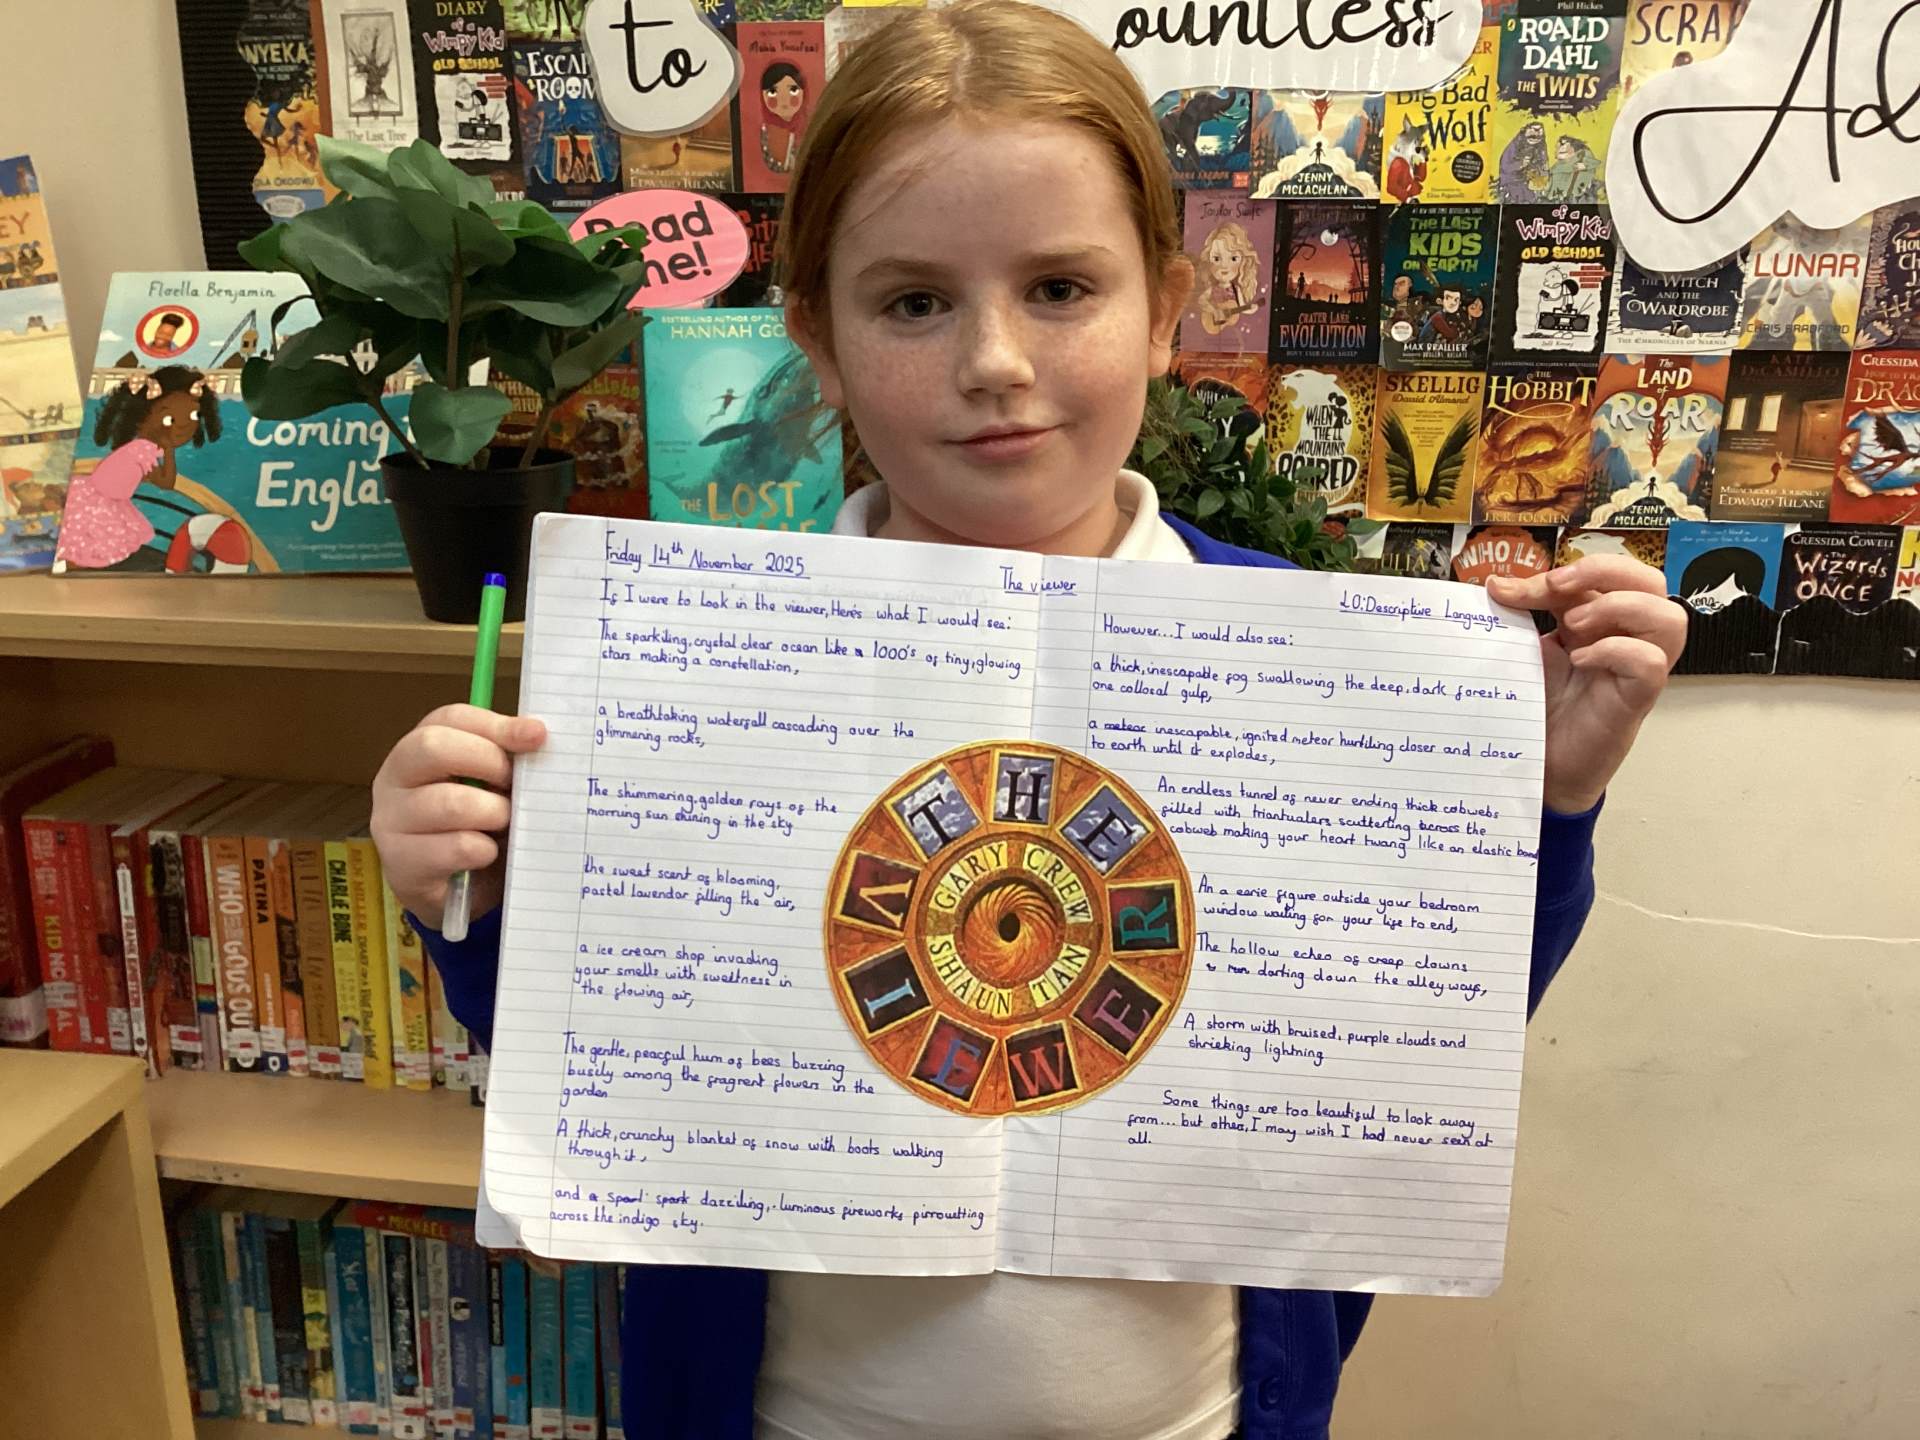 to
ountless
Ad
Read
me!
NYEKA
The Last Tree
DIARY
of a
Wimpy Kid
OLD SCHOOL
ESCAPE
ROOM
EDWARD TULANE
Malala Yousafzai
Phil Hickes
ROALD
DAHL
THE TWITS
SCRAP
Big Bad
Wolf
JENNY
MCLACHLAN
Taylor Swift
CRATER LAKE
EVOLUTION
THE LAST
KIDS
ON EARTH
MAX BRALLIER
of a
Wimpy Kid
OLD SCHOOL
THE WITCH
AND THE
WARDROBE
THE CHRONICLES OF NARNIA
LUNAR
CHRIS BRADFORD
WHEN
THE
MOUNTAINS
ROARED
SKELLIG
David Almond
THE
HOBBIT
J.R.R. TOLKIEN
The
LAND
of
ROAR
JENNY
MCLACHLAN
KATE
DICAMILLO
EDWARD TULANE
CRESSIDA
CRESSIDA COWELL
The
Wizards
of
ONCE
Floella Benjamin
Coming
Engla
BESTSELLING AUTHOR OF
HANNAH GO
THE LOST
Friday 14th November 2025
The viewer
LO: Descriptive Language
If I were to look in the viewer, Here's what I would see:
The sparkiling, crystal clear ocean like a 1000's of tiny, glowing
stars making a constellation,
a breathtaking waterfall cascading over the
glimmering rocks,
The shimmering, golden rays of the
morning sun shining in the sky
the sweet scent of blooming,
pastel lavendar filling the air,
a ice cream shop invading
your smells with sweetness in
the flowing air,
The gentle, peacful hum of bees buzzing
busily among the fragrent flowers in the
garden
A thick, crunchy blanket of snow with boots walking
through it,
and a spark dazziling, luminous fireworks pirrouetting
across the indigo sky.
However... I would also see:
a thick, inescapable fog swallowing the deep, dark forest in
one collosal gulp,
a meteor inescapable, ignited meteor hurtiling closer and closer
to earth until it explodes,
An endless tunnel of never ending thick cobwebs
filled with triantualers scutterting across the
cobweb making your heart twang like an elastic band,
An a eerie figure outside your bedroom
window waiting for your life to end,
The hollow echeo of creep clowns
run darting down the alley ways,
A storm with bruised, purple clouds and
shrieking lightning
Some things are too beautiful to look away
from... but others, I may wish I had never seen at
all.
THE VIEWER
GARY CREW
SHAUN TAN
KID NORMAL
WHO
GOUS
PATINA
CHARLIE BONE
MICHAEL